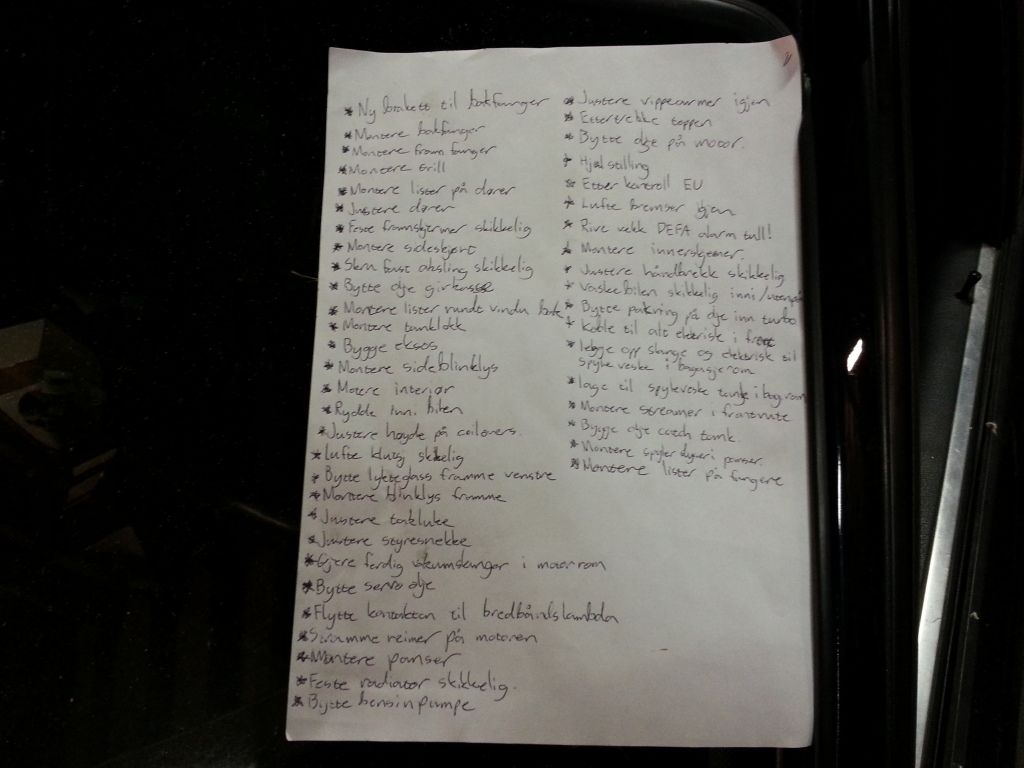 * Ny brakett til bakfanger
* Montere bakfanger
* Montere fram fanger
* Montere Grill
* Montere lister på dører
* Justere dører
* Feste framskjermer skikkelig
* Montere sideskjørt
* Skru fast aksling skikkelig
* Bytte olje girkasse
* Montere lister rundt vindu bak
* Montere tanklokk
* Bygge eksos
* Montere sideblinklys
* Motere interiør
* Rydde inni bilen
* Justere høyde på coilovers.
* Lufte klutsj skikelig
* Bytte lykteglass framme venstre
* Montere blinklys framme
* Justere takluke
* Justere styresnekke
* Gjere ferdig vakumslanger i motorrom
* Bytte servo olje
* Flytte kontakten til bredbåndslambda
* Stramme reimer på motoren
* Montere panser
* Feste radiator skikkelig.
* Bytte bensinpumpe
* Justere vippearmer igjen
* Ettertrekke toppen
* Bytte olje på motor.
* Hjulstilling
* Etter kontroll EU
* Lufte bremser igjen
* Rive vekk DEFA alarm tull!
* Montere innerskjermer.
* Justere håndbrekk skikkelig
* Vaske bilen skikkelig inni/utenpå
* Bytte pakning på olje inn turbo
* Koble til alt elektrisk i front
* legge opp slange og elektrisk til
spyleveske i bagasjerom
* lage til spyleveske tank i bag rom
* Montere streamer i frontrute
* Bygge olje catch tank.
* Montere spyler dyser i panser.
* Montere lister på fangere